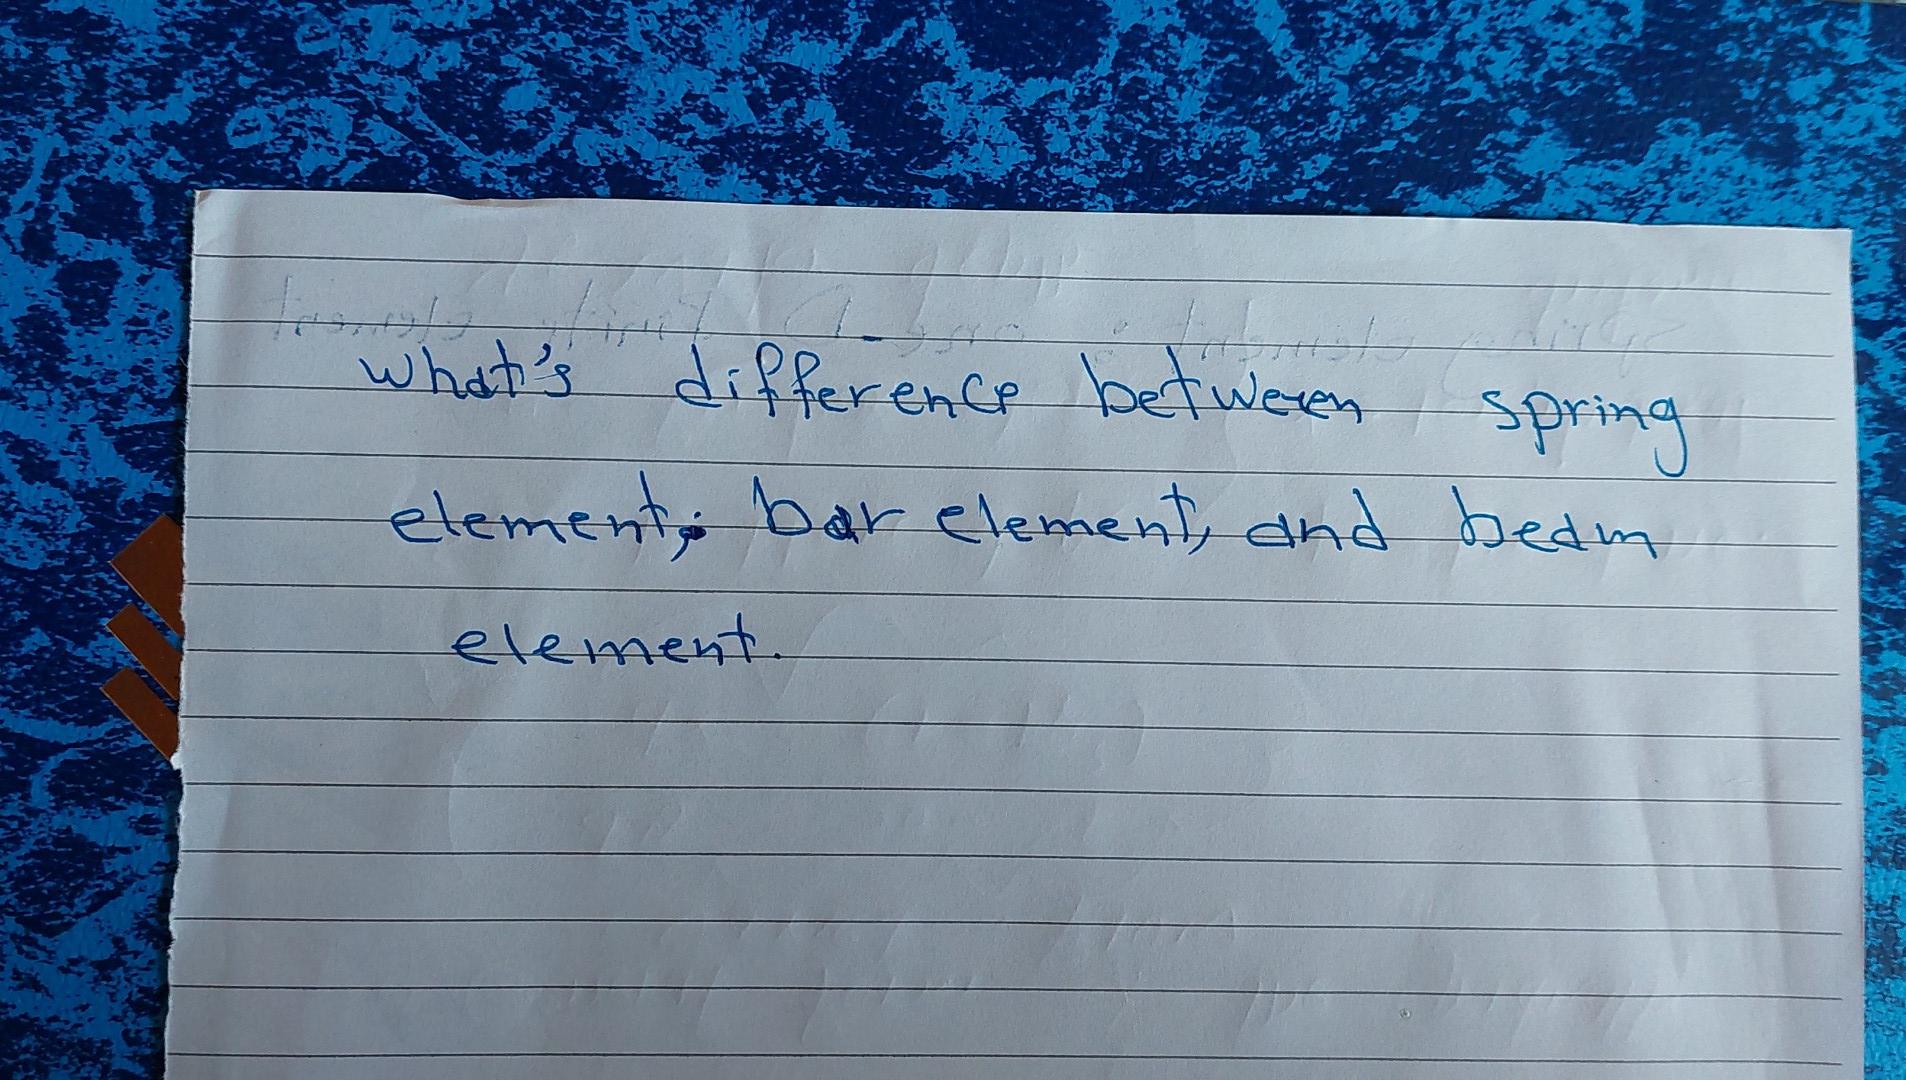 what's difference between spring
element, bar element, and beam
element.